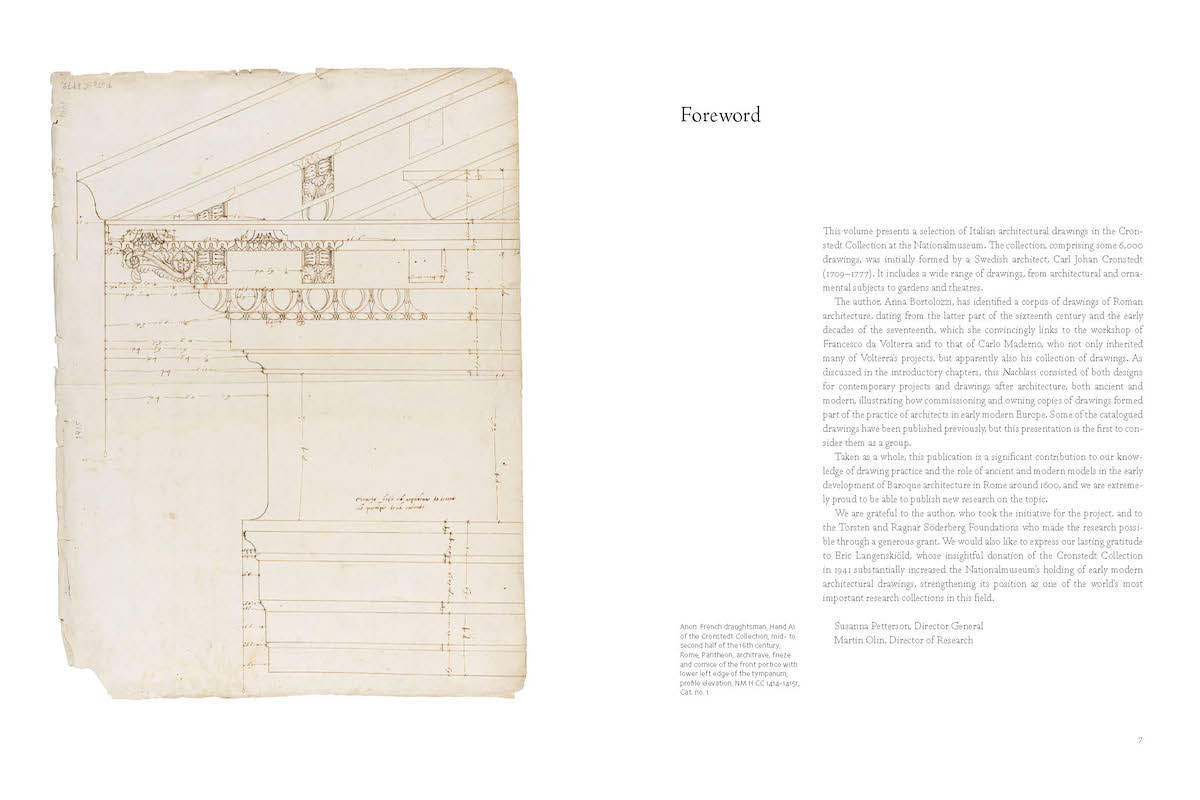 1415
Foreword
This volume presents a selection of Italian architectural drawings in the Cron-
stedt Collection at the Nationalmuseum. The collection, comprising some 6,000
drawings, was initially formed by a Swedish architect, Carl Johan Cronstedt
(1709–1777). It includes a wide range of drawings, from architectural and orna-
mental subjects to gardens and theatres.
The author, Anna Bortolozzi, has identified a corpus of drawings of Roman
architecture, dating from the latter part of the sixteenth century and the early
decades of the seventeenth, which she convincingly links to the workshop of
Francesco da Volterra and to that of Carlo Maderno, who not only inherited
many of Volterra's projects, but apparently also his collection of drawings. As
discussed in the introductory chapters, this Nachlass consisted of both designs
for contemporary projects and drawings after architecture, both ancient and
modern, illustrating how commissioning and owning copies of drawings formed
part of the practice of architects in early modern Europe. Some of the catalogued
drawings have been published previously, but this presentation is the first to con-
sider them as a group.
Taken as a whole, this publication is a significant contribution to our know-
ledge of drawing practice and the role of ancient and modern models in the early
development of Baroque architecture in Rome around 1600, and we are extreme-
ly proud to be able to publish new research on the topic.
We are grateful to the author, who took the initiative for the project, and to
the Torsten and Ragnar Söderberg Foundations who made the research possi-
ble through a generous grant. We would also like to express our lasting gratitude
to Eric Langenskiöld, whose insightful donation of the Cronstedt Collection
in 1941 substantially increased the Nationalmuseum's holding of early modern
architectural drawings, strengthening its position as one of the world's most
important research collections in this field.
Susanna Petterson, Director General
Martin Olin, Director of Research
Anon. French draughtsman, Hand A1
of the Cronstedt Collection, mid- to
second half of the 16th century,
Rome, Pantheon, architrave, frieze
and cornice of the front portico with
lower left edge of the tympanum,
profile elevation, NM H CC 1414–1415r,
Cat. no. 1
7